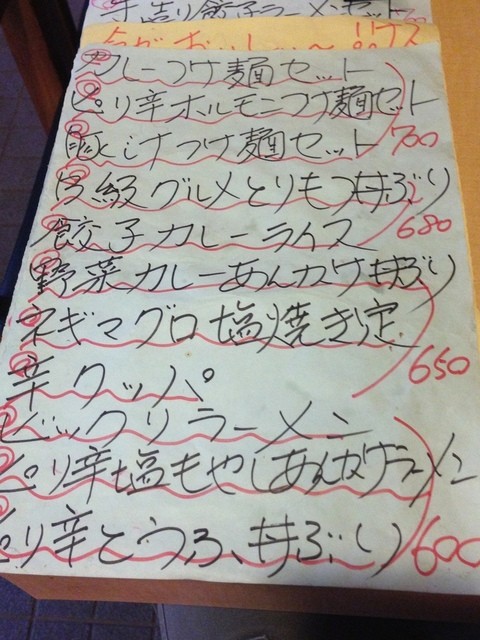 手造り餃子ラーメンセット
カレーつけ麺セット
ピリ辛ホルモンつけ麺セット
豚汁つけ麺セット
700
B級グルメとりもつ丼ぶり
餃子カレーライス
680
野菜カレーあんかけ丼ぶり
ネギマグロ塩焼き定
650
辛クッパ
ビックリラーメン
ピリ辛塩もやしあんかけラーメン
ピリ辛とうふ丼ぶり
600